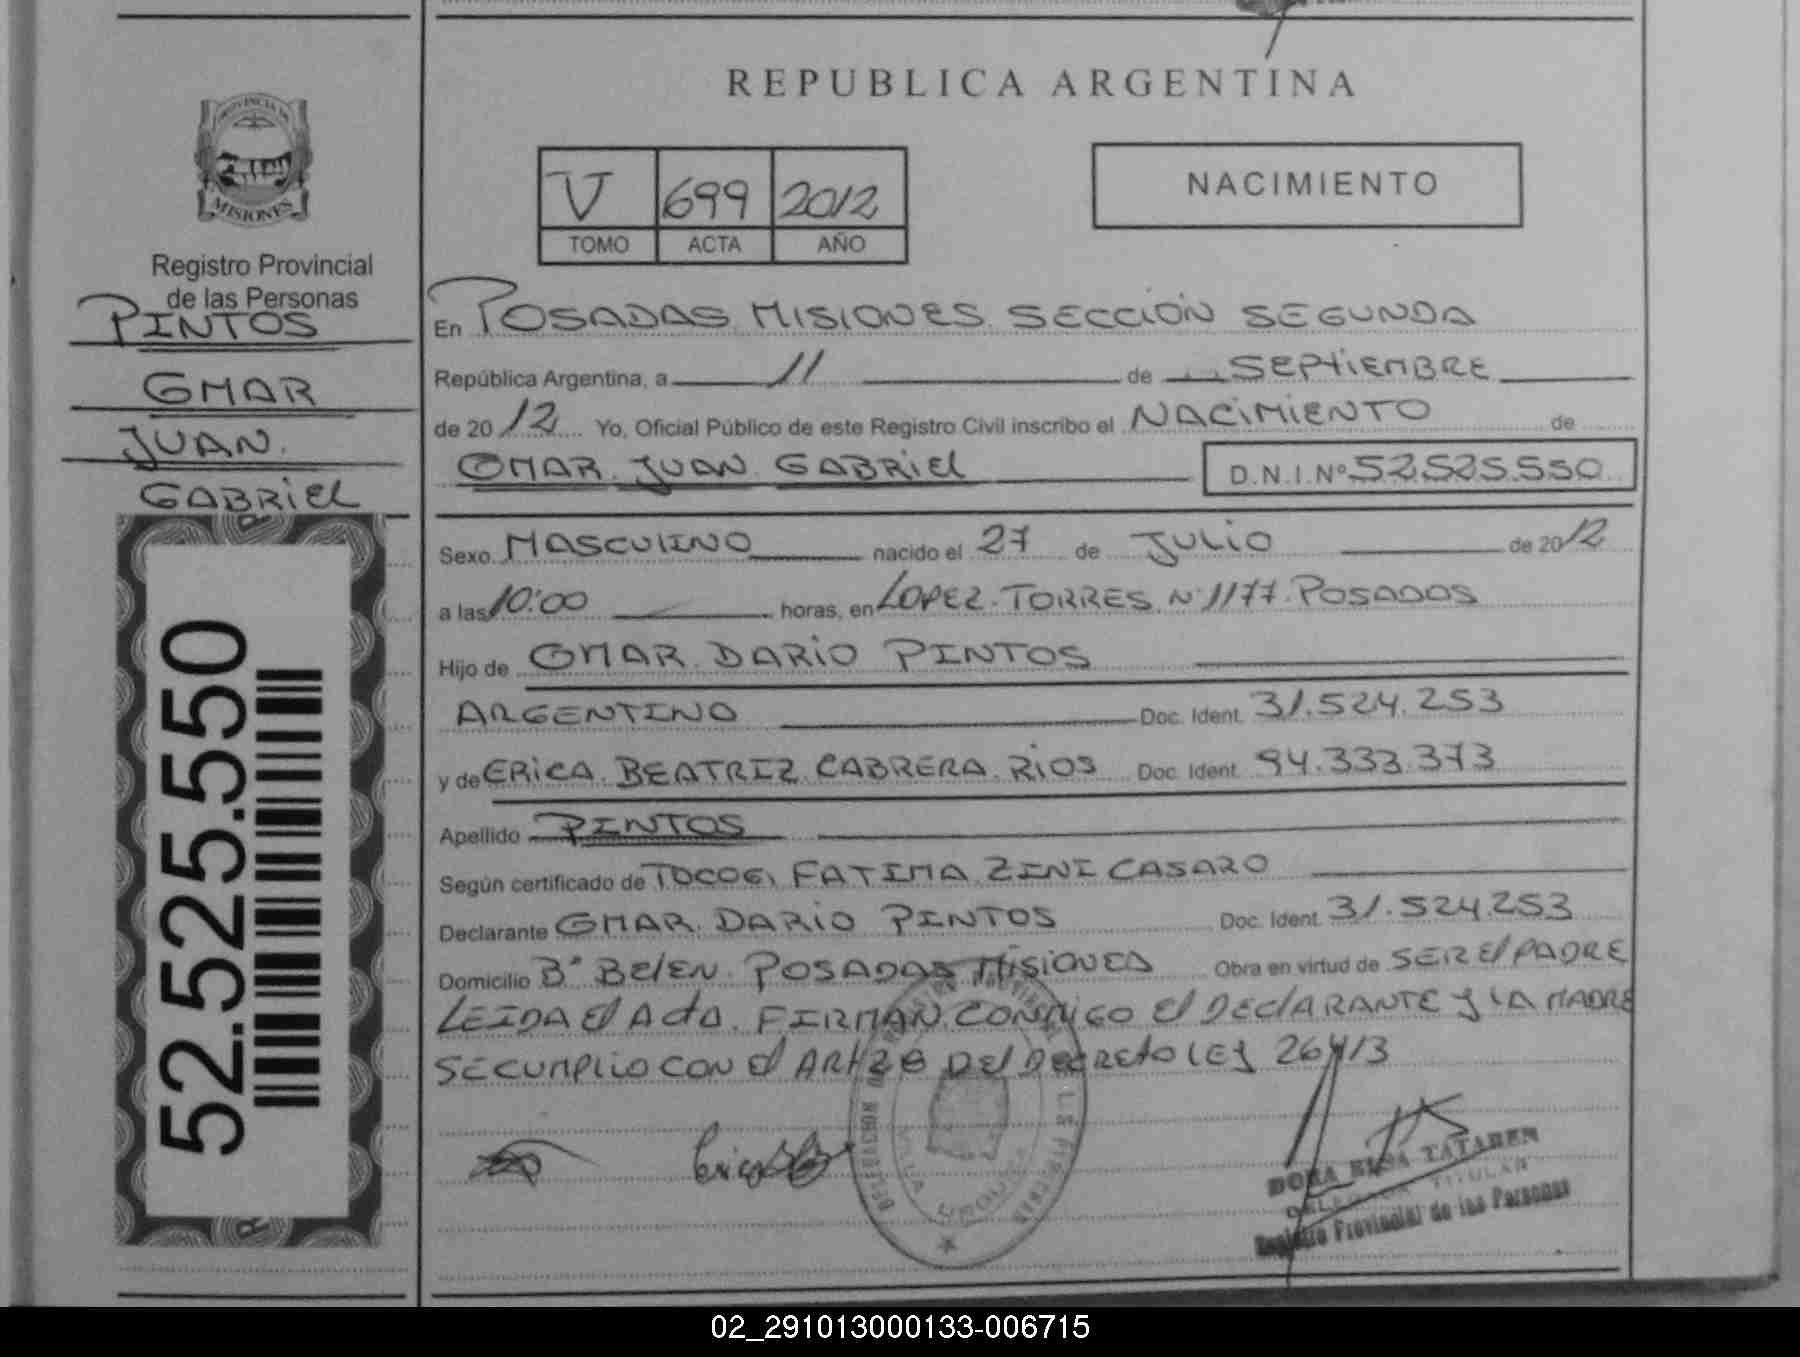 REPUBLICA ARGENTINA
PROVINCIA DE
MISIONES
Registro Provincial
de las Personas
PINTOS
OMAR
JUAN
GABRIEL
52.525.550
V 699 2012
TOMO ACTA AÑO
NACIMIENTO
En POSADAS MISIONES SECCIÓN SEGUNDA
República Argentina, a 11 de SEPTIEMBRE
de 2012 Yo, Oficial Público de este Registro Civil inscribo el NACIMIENTO de
OMAR JUAN GABRIEL D.N.I.Nº 52.525.550
Sexo MASCULINO nacido el 27 de JULIO de 2012
a las 10:00 horas, en LOPEZ TORRES Nº 1177 POSADAS
Hijo de OMAR DARIO PINTOS
ARGENTINO Doc. Ident. 31.524.253
y de ERICA BEATRIZ CABRERA RIOS Doc. Ident. 94.333.373
Apellido PINTOS
Según certificado de TOCOG, FATIMA ZINI CASARO
Declarante OMAR DARIO PINTOS Doc. Ident. 31.524.253
Domicilio Bº BELEN POSADAS MISIONES Obra en virtud de SER EL PADRE
LEIDA EL ACTA. FIRMAN CONMIGO EL DECLARANTE Y LA MADRE
SE CUMPLIO CON EL ART 28 DEL DECRETO LEY 26413
DORA ELSA TATAREN
DELEGADA TITULAR
Registro Provincial de las Personas
02_291013000133-006715